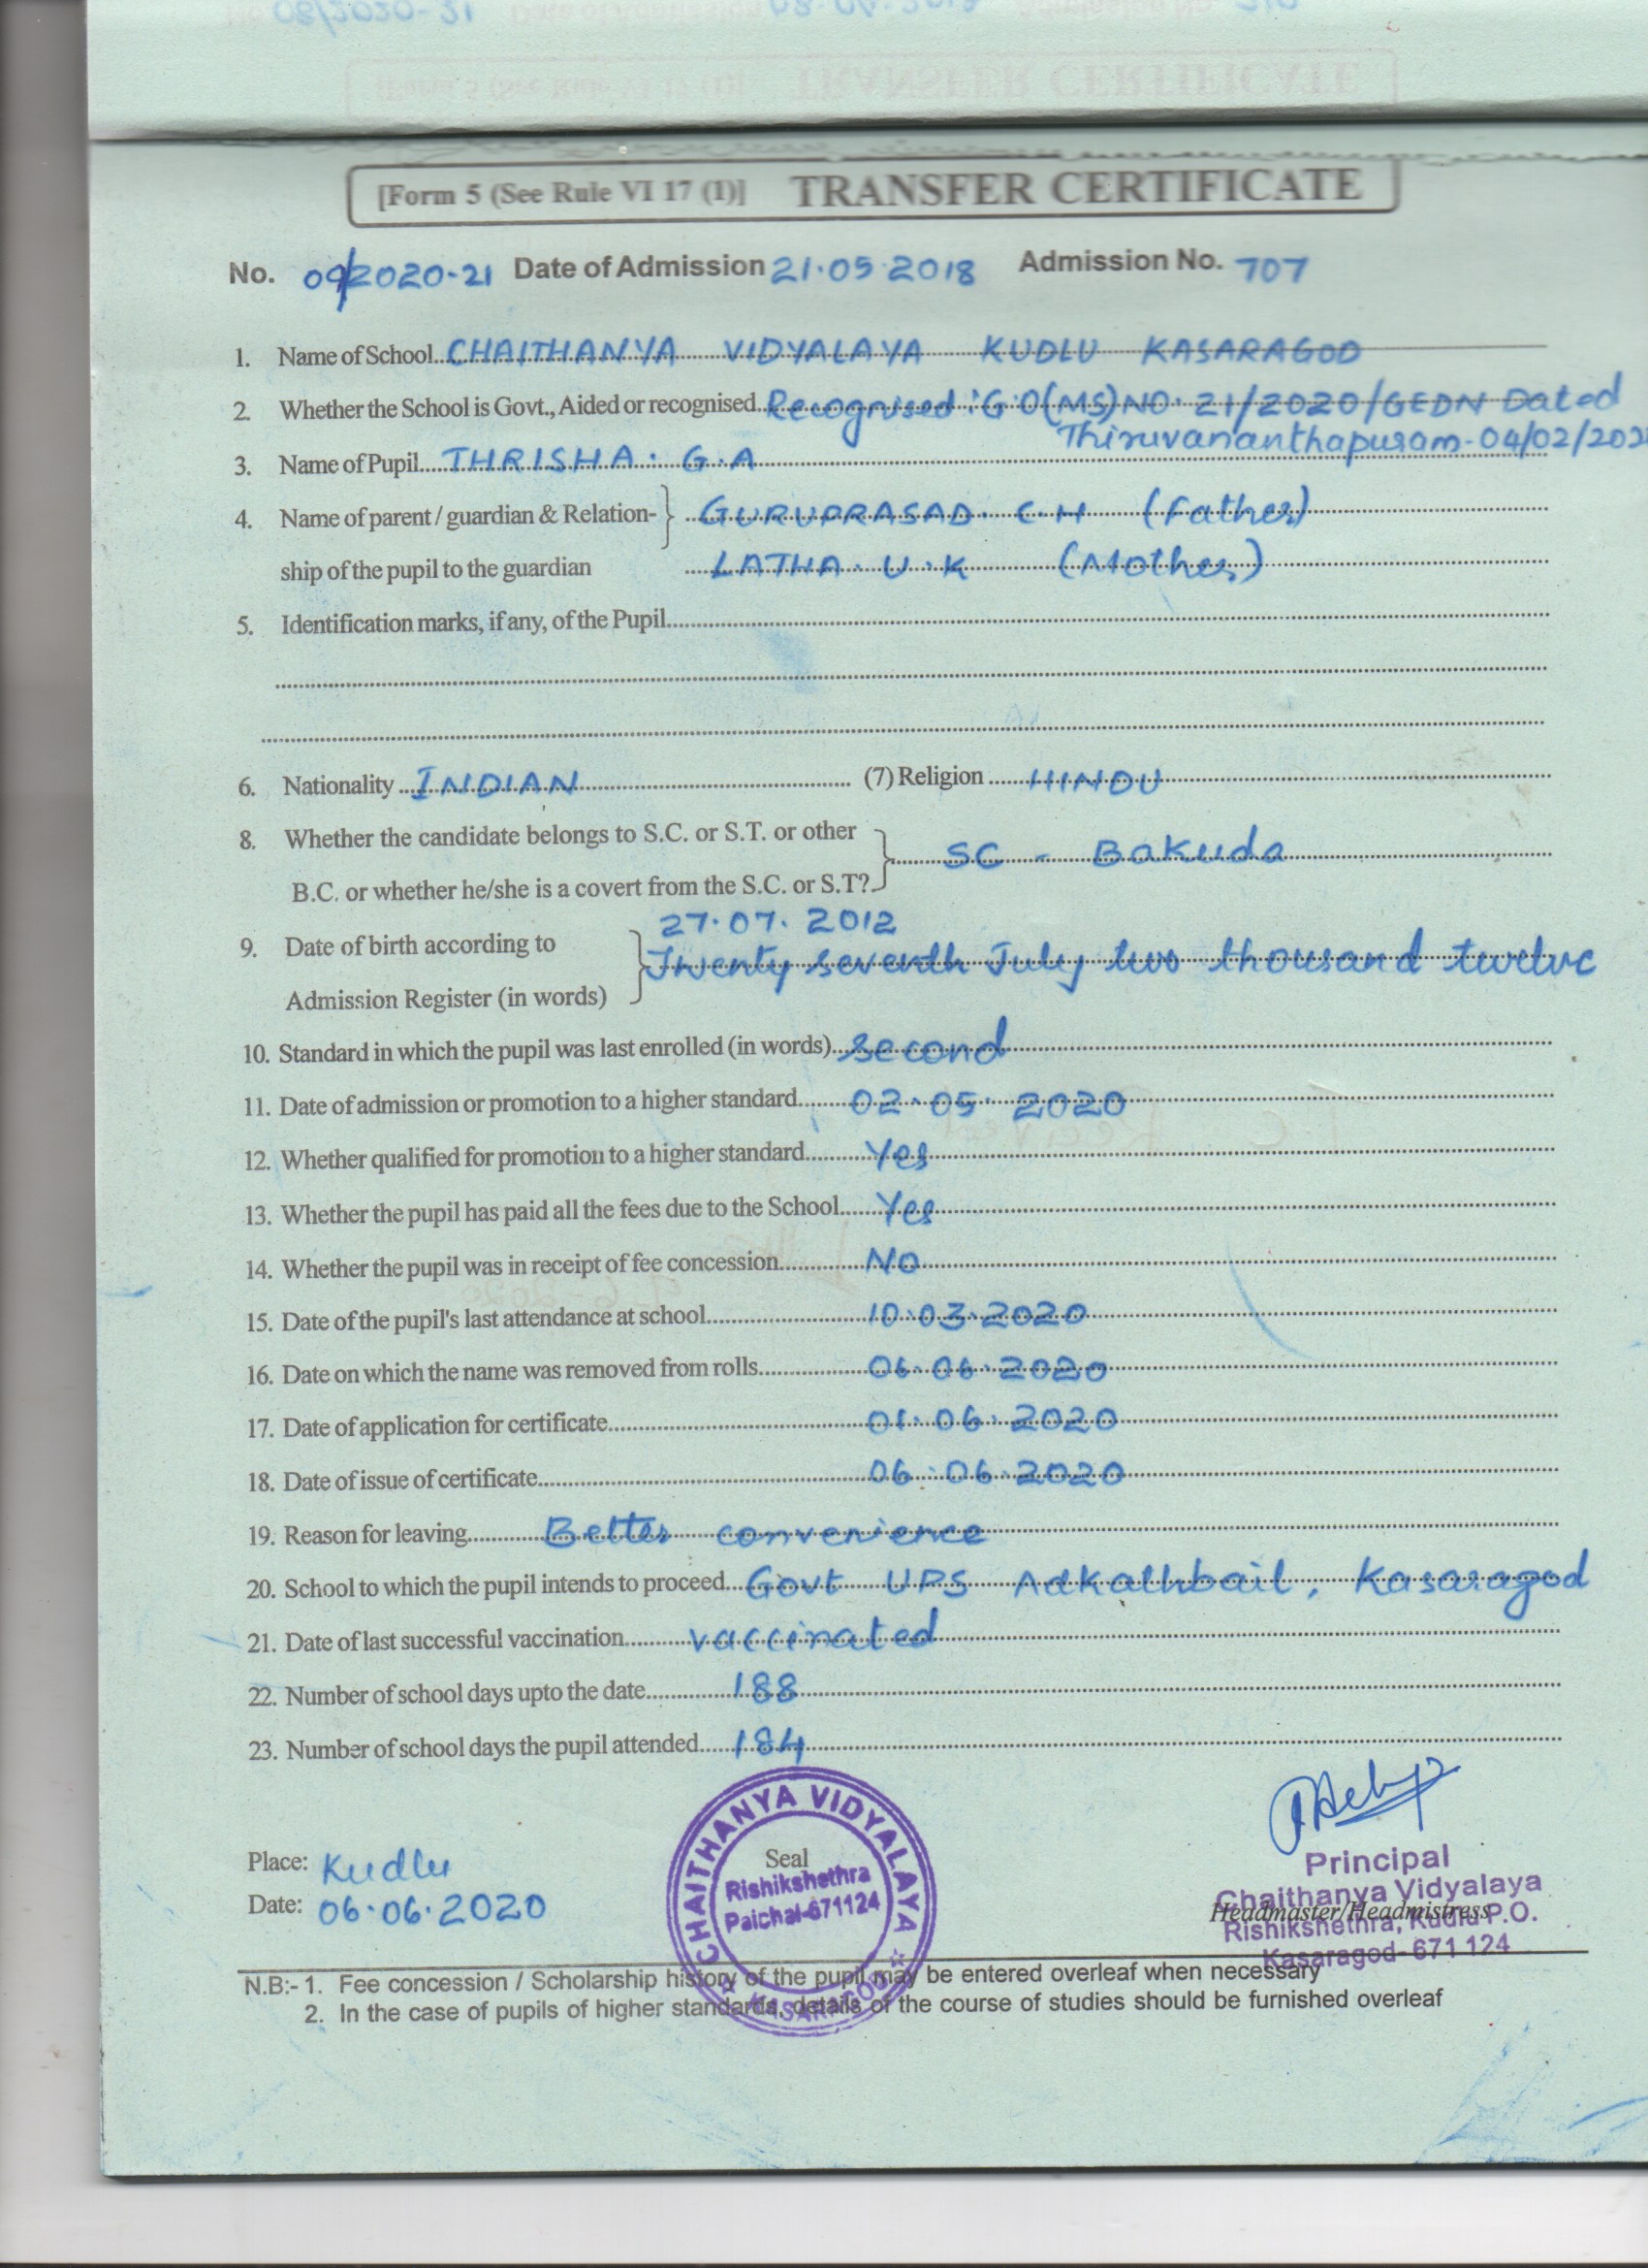 [Form 5 (See Rule VI 17 (1)] TRANSFER CERTIFICATE
No. 09/2020-21 Date of Admission 21.05.2018 Admission No. 707
1. Name of School CHAITHANYA VIDYALAYA KUDLU KASARAGOD
2. Whether the School is Govt., Aided or recognised Recognised : G.O(MS)NO. 21/2020/GEDN Dated
Thiruvananthapuram-04/02/202
3. Name of Pupil THRISHA. G.A
4. Name of parent / guardian & Relation- GURUPRASAD. C.H (Father)
ship of the pupil to the guardian LATHA. U.K (Mother)
5. Identification marks, if any, of the Pupil
6. Nationality INDIAN (7) Religion HINDU
8. Whether the candidate belongs to S.C. or S.T. or other SC - Bakuda
B.C. or whether he/she is a covert from the S.C. or S.T?
27.07.2012
9. Date of birth according to Twenty seventh July two thousand twelve
Admission Register (in words)
10. Standard in which the pupil was last enrolled (in words) second
11. Date of admission or promotion to a higher standard 02.05.2020
12. Whether qualified for promotion to a higher standard Yes
13. Whether the pupil has paid all the fees due to the School Yes
14. Whether the pupil was in receipt of fee concession NO
15. Date of the pupil's last attendance at school 10.03.2020
16. Date on which the name was removed from rolls 06.06.2020
17. Date of application for certificate 01.06.2020
18. Date of issue of certificate 06.06.2020
19. Reason for leaving Better convenience
20. School to which the pupil intends to proceed Govt UPS Adkathbail, Kasaragod
21. Date of last successful vaccination vaccinated
22. Number of school days upto the date 188
23. Number of school days the pupil attended 184
CHAITHANYA VIDYALAYA
Seal
Rishikshethra
Paichal-671124
KASARAGOD
Place: Kudlu
Date: 06.06.2020
Principal
Chaithanya Vidyalaya
Headmaster/Headmistress
Rishikshethra, Kudlu P.O.
Kasaragod-671 124
N.B:- 1. Fee concession / Scholarship history of the pupil may be entered overleaf when necessary
2. In the case of pupils of higher standards, details of the course of studies should be furnished overleaf